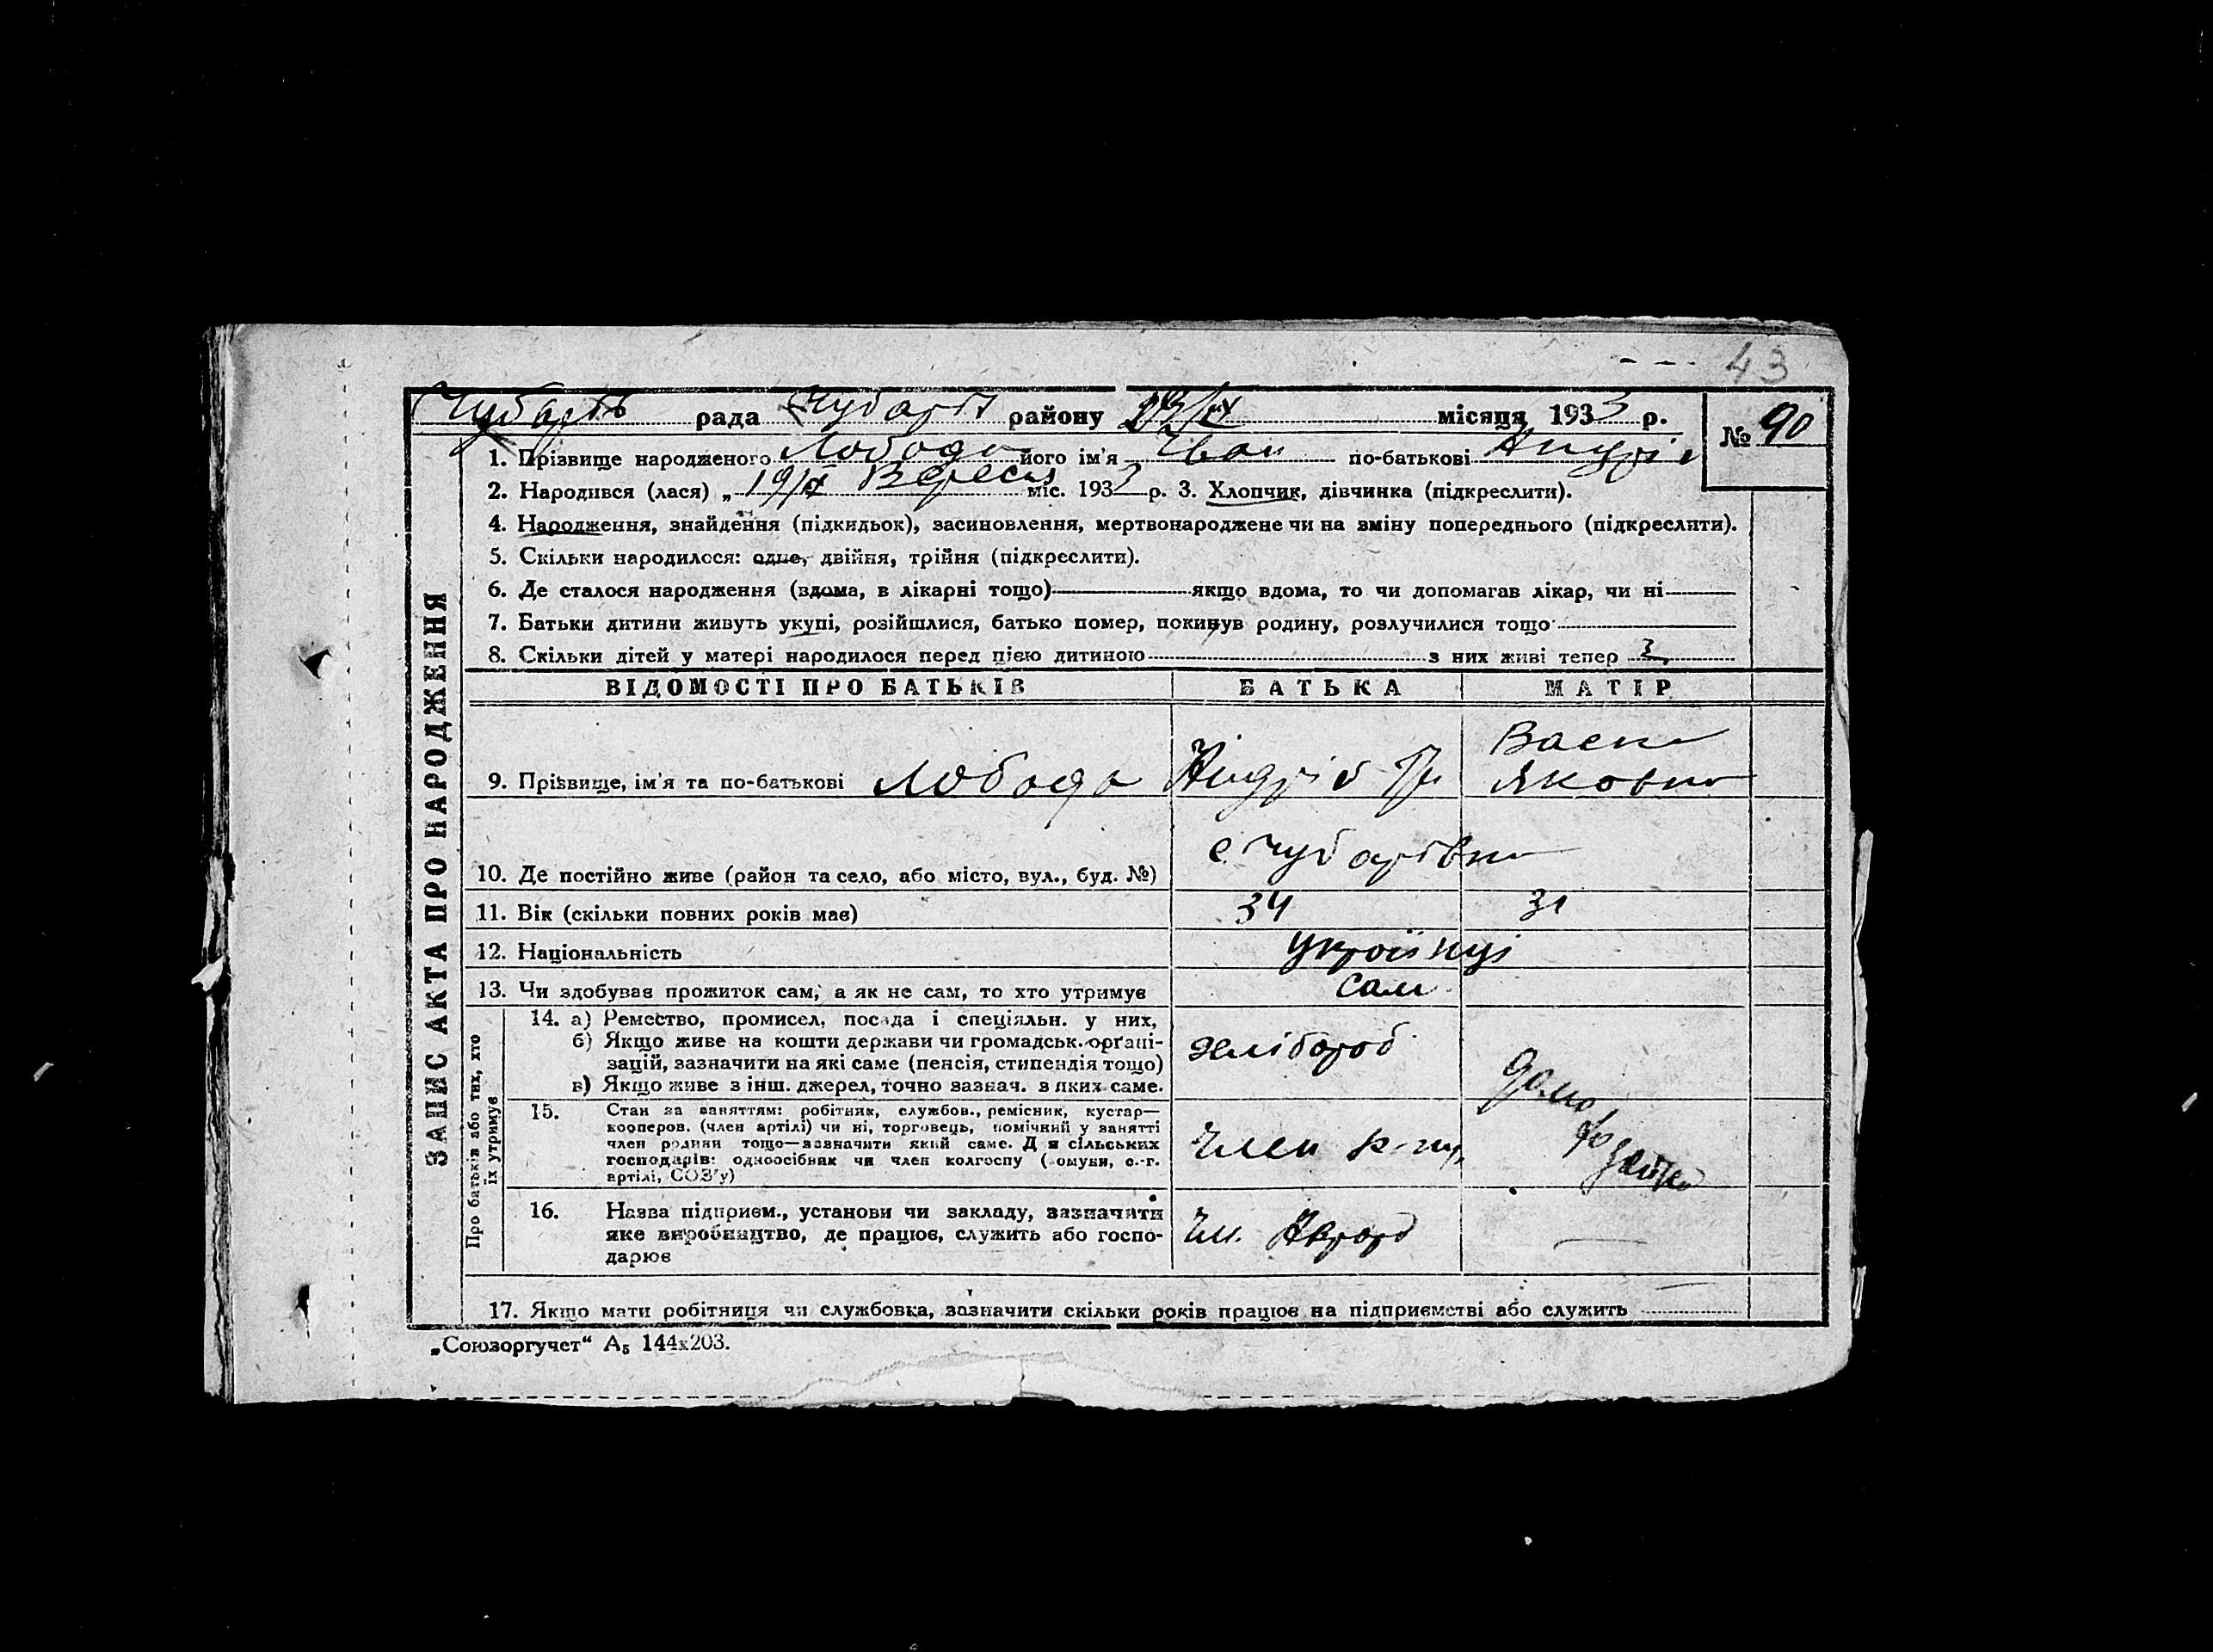 43
рада району місяця 1933 р. № 90
1. Прізвище народженого Лобода його ім'я Іван по-батькові Андрій
2. Народився (лася) „ 19/IX Вересн міс. 1933 р. 3. Хлопчик, дівчинка (підкреслити).
4. Народження, знайдення (підкидьок), засиновлення, мертвонароджене чи на зміну попереднього (підкреслити).
5. Скільки народилося: одне, двійня, трійня (підкреслити).
6. Де сталося народження (вдома, в лікарні тощо) якщо вдома, то чи допомагав лікар, чи ні
7. Батьки дитини живуть укупі, розійшлися, батько помер, покинув родину, розлучилися тощо
8. Скільки дітей у матері народилося перед цією дитиною з них живі тепер 3
ЗАПИС АКТА ПРО НАРОДЖЕННЯ
ВІДОМОСТІ ПРО БАТЬКІВ БАТЬКА МАТІР
9. Прізвище, ім'я та по-батькові Лобода Андрій Яковна
10. Де постійно живе (район та село, або місто, вул., буд. №) с. Чубарівка
11. Вік (скільки повних років має) 34 31
12. Національність українці
13. Чи здобував прожиток сам, а як не сам, то хто утримує сам
Про батьків або тих, хто
їх утримує
14. а) Ремество, промисел, посада і спеціяльн. у них,
б) Якщо живе на кошти держави чи громадськ. орґані-
зацій, зазначити на які саме (пенсія, стипендія тощо)
в) Якщо живе з інш. джерел, точно зазнач. з яких саме.
хлібороб
15. Стан за заняттям: робітник, службов., ремісник, кустар—
кооперов. (член артілі) чи ні, торговець, помічний у занятті
член родини тощо—зазначити який саме. Д я сільських
господарів: одноосібник чи член колгоспу (комуни, с.-г.
артілі, СОЗ'у)
Член
16. Назва підприєм., установи чи закладу, зазначити
яке виробництво, де працює, служить або госпо-
дарює
17. Якщо мати робітниця чи службовка, зазначити скільки років працює на підприємстві або служить
„Союзоргучет“ А5 144х203.